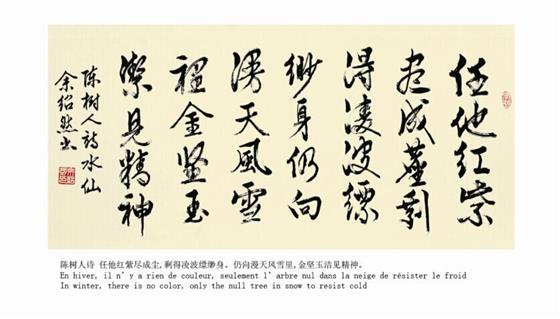 任他红紫
尽成塵剩
得凌波缥
缈身仍向
漫天風雪
裡金坚玉
潔見精神
陈树人诗水仙
余绍然书
陈树人诗 任他红紫尽成尘,剩得凌波缥缈身。仍向漫天风雪里,金坚玉洁见精神。
En hiver, il n’y a rien de couleur, seulement l’arbre nul dans la neige de résister le froid
In winter, there is no color, only the null tree in snow to resist cold